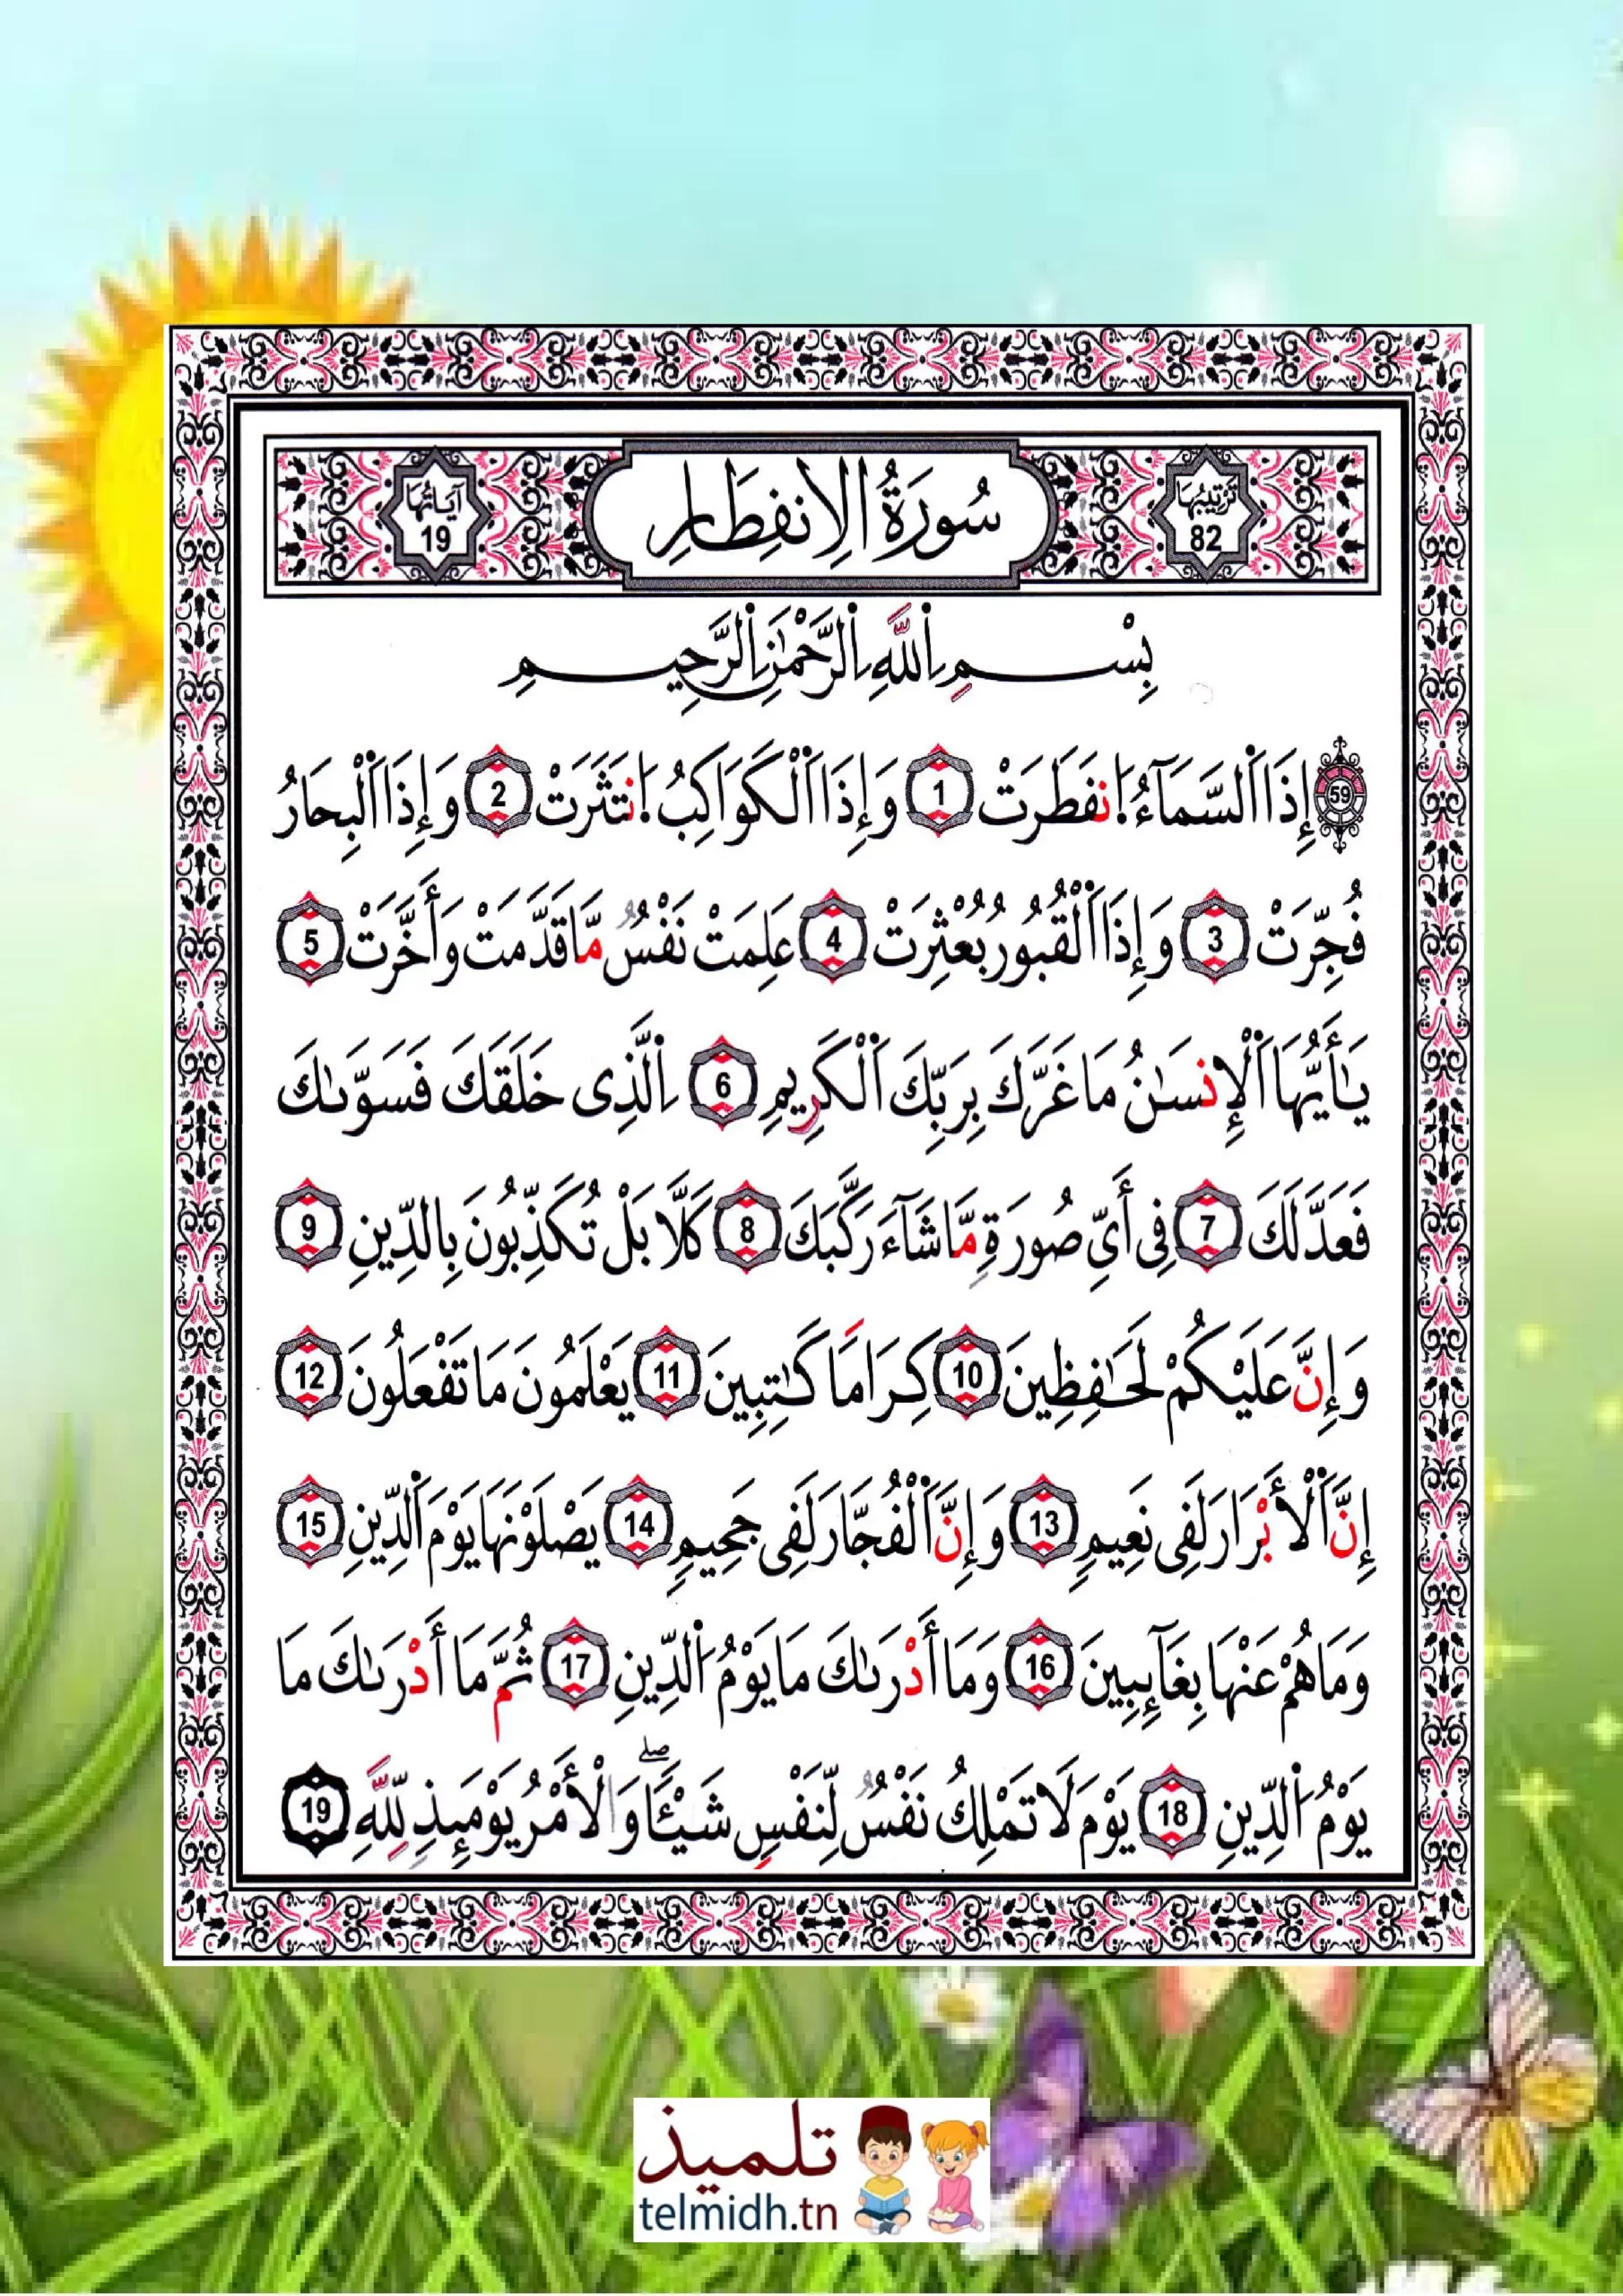 سُورَةُ الِانفِطَارِ
تَرْتِيبُهَا
82
آيَاتُهَا
19
بِسْمِ اِللَّهِ اِلرَّحْمَٰنِ اِلرَّحِيمِ
59 إِذَا اَلسَّمَآءُ اُ۪نفَطَرَتْ 1 وَإِذَا اَلْكَوَاكِبُ اُ۪نتَثَرَتْ 2 وَإِذَا اَلْبِحَارُ
فُجِّرَتْ 3 وَإِذَا اَلْقُبُورُ بُعْثِرَتْ 4 عَلِمَتْ نَفْسٌ مَّا قَدَّمَتْ وَأَخَّرَتْ 5
يَٰأَيُّهَا اَلْإِنسَٰنُ مَا غَرَّكَ بِرَبِّكَ اَلْكَرِيمِ 6 اِلَّذِى خَلَقَكَ فَسَوَّىٰكَ
فَعَدَّلَكَ 7 فِى أَىِّ صُورَةٍ مَّا شَآءَ رَكَّبَكَ 8 كَلَّا بَلْ تُكَذِّبُونَ بِالدِّينِ 9
وَإِنَّ عَلَيْكُمْ لَحَٰفِظِينَ 10 كِرَامًا كَٰتِبِينَ 11 يَعْلَمُونَ مَا تَفْعَلُونَ 12
إِنَّ اَلْأَبْرَارَ لَفِى نَعِيمٍ 13 وَإِنَّ اَلْفُجَّارَ لَفِى جَحِيمٍ 14 يَصْلَوْنَهَا يَوْمَ اَلدِّينِ 15
وَمَا هُمْ عَنْهَا بِغَآئِبِينَ 16 وَمَا أَدْرَىٰكَ مَا يَوْمُ اُلدِّينِ 17 ثُمَّ مَا أَدْرَىٰكَ مَا
يَوْمُ اُلدِّينِ 18 يَوْمَ لَا تَمْلِكُ نَفْسٌ لِّنَفْسٍ شَيْـًٔا ۖ وَالْأَمْرُ يَوْمَئِذٍ لِّلَّهِ 19
تلميذ
telmidh.tn